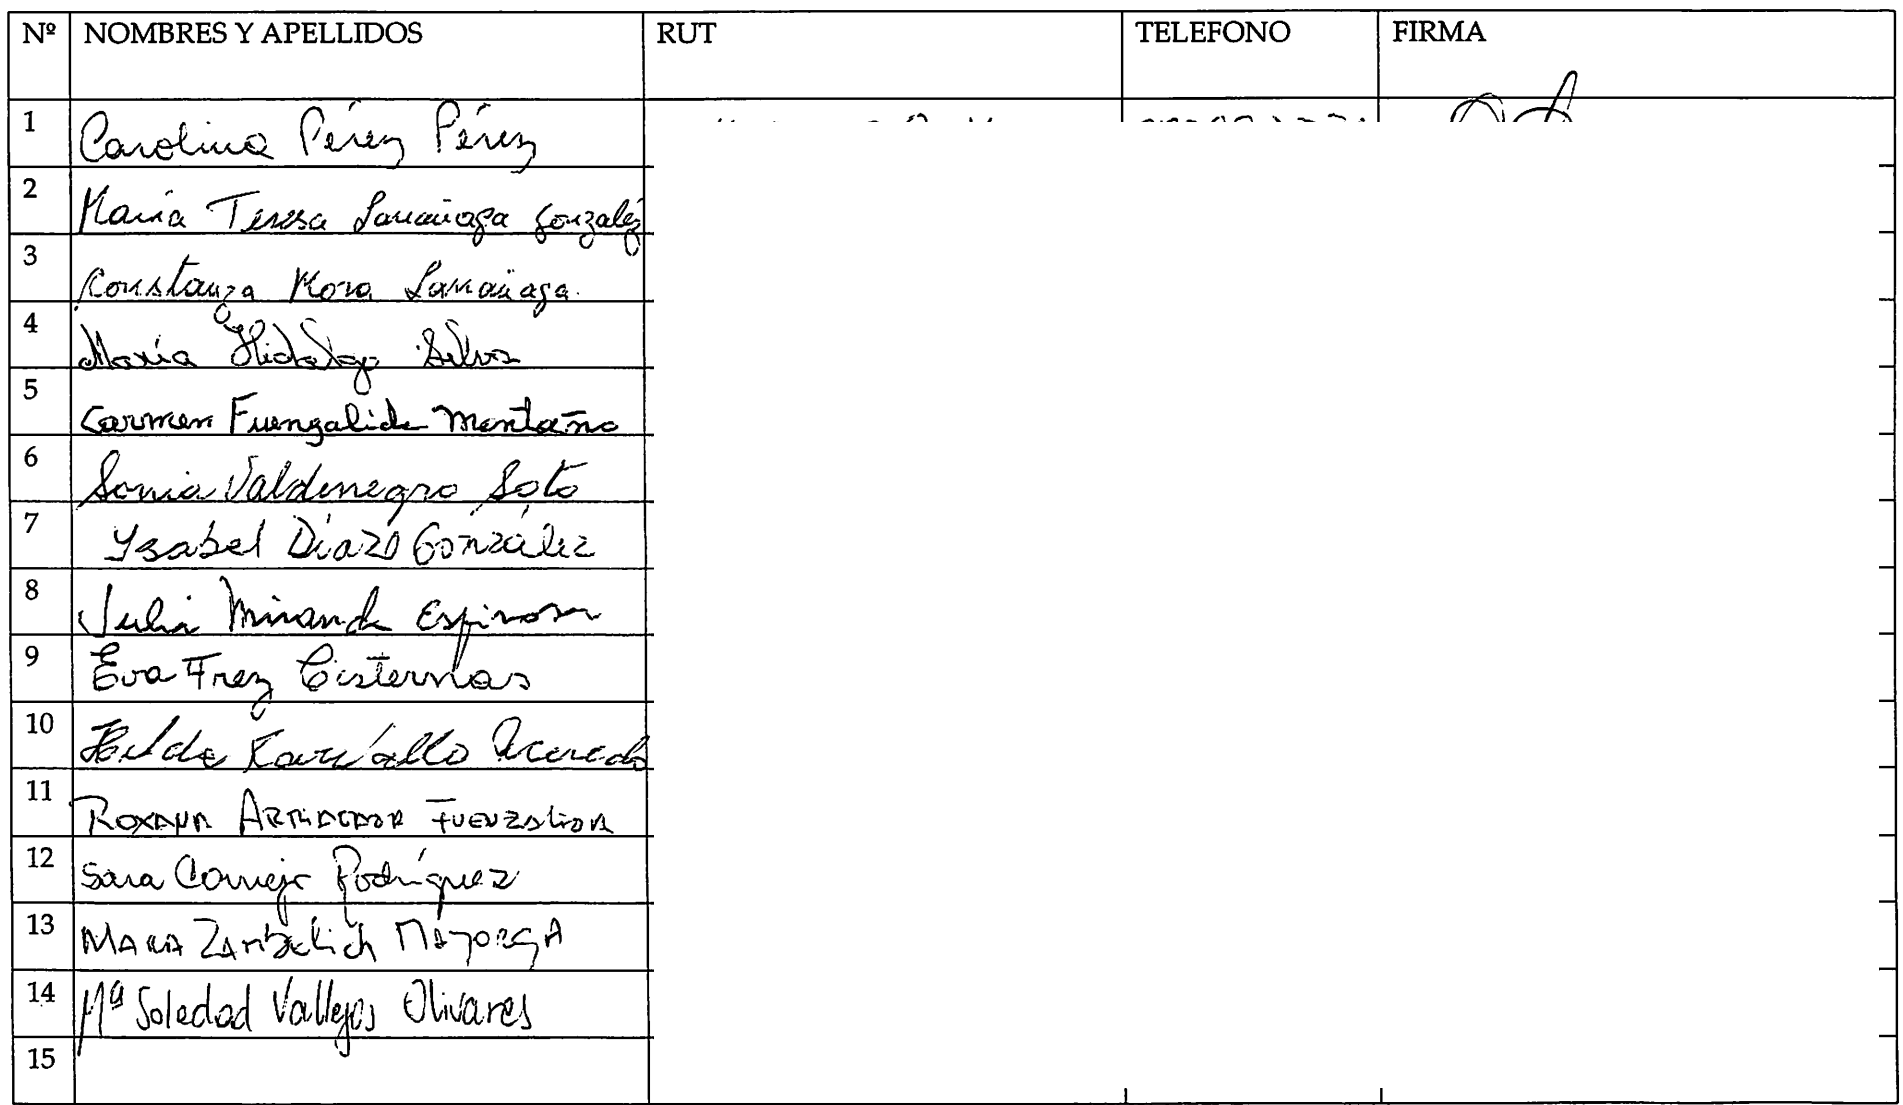 Nº NOMBRES Y APELLIDOS RUT TELEFONO FIRMA
1 Carolina Pérez Pérez
2 María Teresa Larrañaga González
3 Constanza Mora Larrañaga.
4 María Hidalgo Silva
5 Carmen Fuenzalida Montaño
6 Sonia Valdenegro Soto
7 Ysabel Díaz González
8 Julia Miranda Espinosa
9 Eva Frez Cisternas
10 Hilda Acevedo
11 ROXANA FUENZALIDA
12 Sara Cornejo Rodríguez
13 MAYORGA
14 Mª Soledad Vallejos Olivares
15